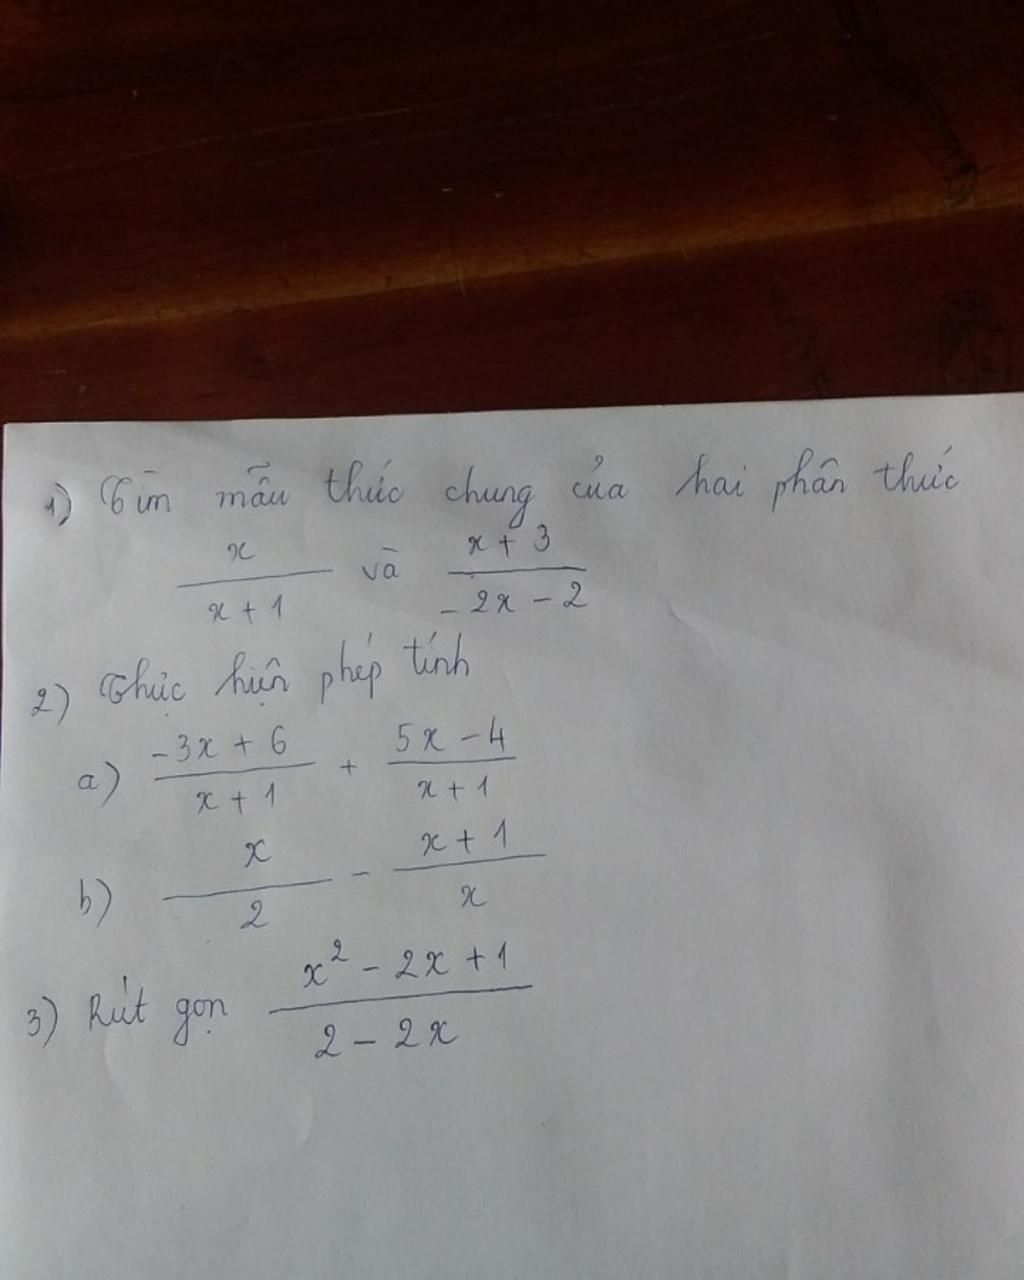 1) Tìm mẫu thức chung của hai phân thức
x/(x + 1) và (x + 3)/(-2x - 2)
2) Thực hiện phép tính
a) (-3x + 6)/(x + 1) + (5x - 4)/(x + 1)
b) x/2 - (x + 1)/x
3) Rút gọn (x² - 2x + 1)/(2 - 2x)